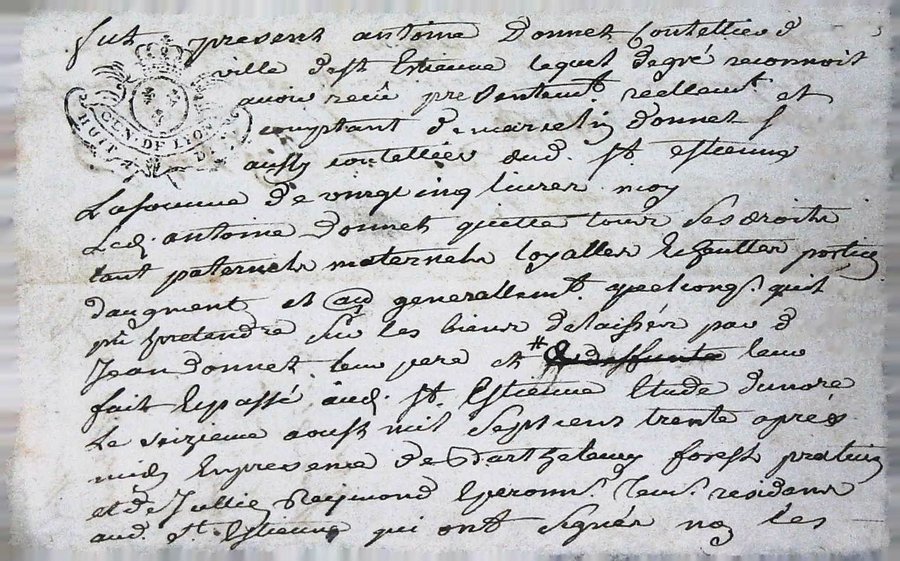 fut present antoine Donnet Coutellier d
ville dest Estienne lequel degré reconnoit
GEN. DE LYON
HUIT
avoir reçu presentemt. reellemt. et
comptant de marcelin donnet
aussy coutellier aud. St. estienne
La somme de vingt cinq livres
Led. antoine Donnet quitte tous ses droits
tant paternels maternels loyalles
daugment et generallemt. quelconq. quil
pretendre sur les biens delaissés par d
Jean donnet leur pere et * deffunte leur
fait Et passé aud. St. Estienne Etude dunore
Le seizieme aoust mil sept cent trente après
midy En presence de Barthelemy forest praticien
et de Jullien Raymond Eperonr. residans
aud. St. Estienne qui ont signés les